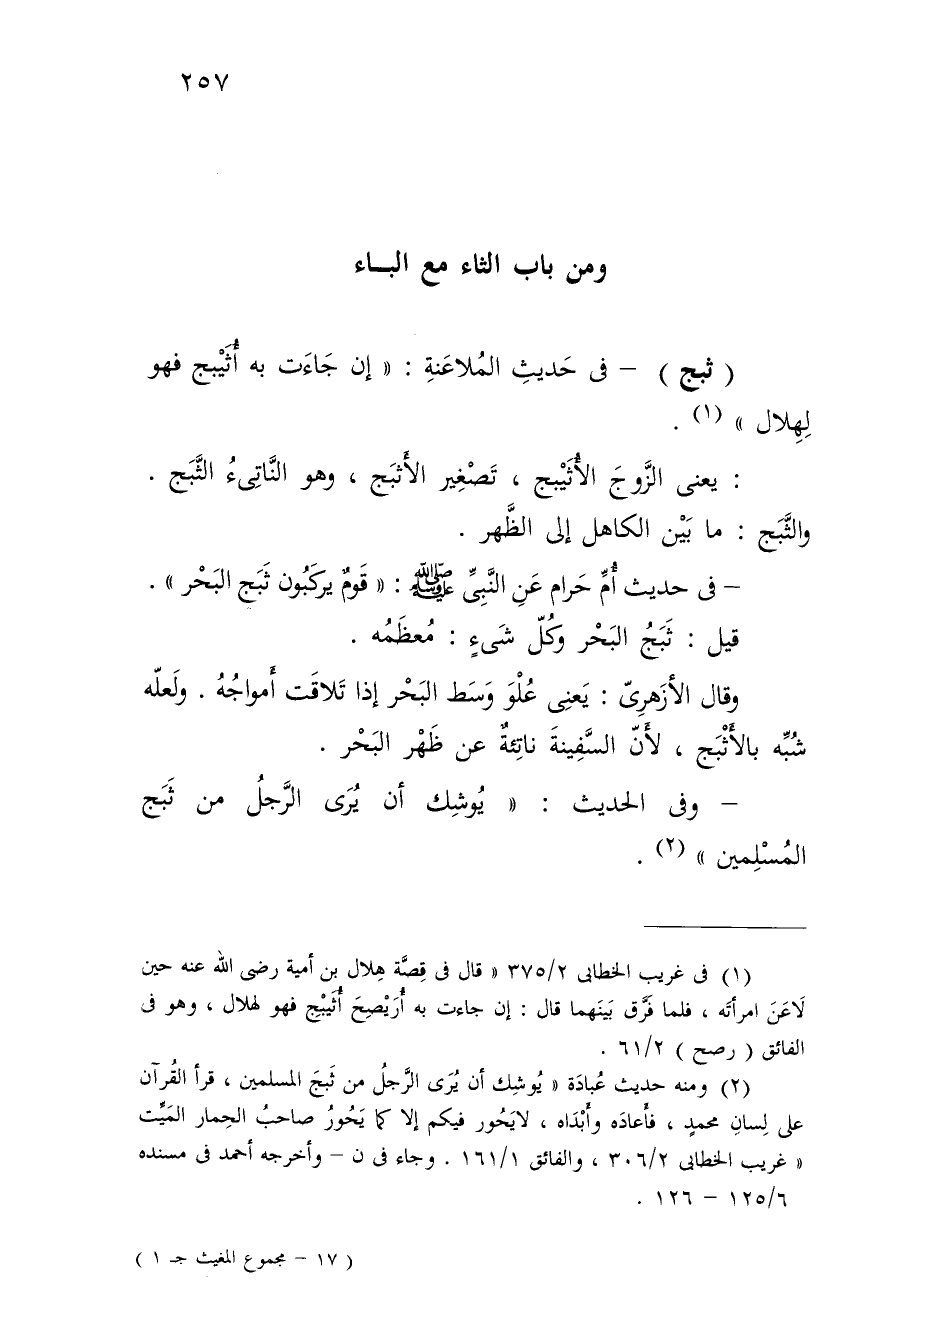 ٢٥٧
ومن باب الثاء مع البـاء
( ثبج ) – فى حَديثِ المُلاعَنةِ : « إن جَاءَت به أُثَيْبج فهو
لِهِلال » (١) .
: يعنى الزَّوجَ الأُثَيْبج ، تَصْغِير الأَثبَج ، وهو النَّاتِىءُ الثَّبَج .
والثَّبَج : ما بَيْن الكاهل إلى الظَّهر .
– فى حديث أُمِّ حَرام عَنِ النَّبِىِّ ﷺ : « قَومٌ يركَبُون ثَبَج البَحْر » .
قيل : ثَبَجُ البَحْر وكُلّ شَىءٍ : مُعظَمُه .
وقال الأزَهرِىّ : يَعنِى عُلْوَ وَسَط البَحْر إذا تَلاقَت أَمواجُهُ . ولَعلّه
شُبِّه بالأَثْبَج ، لأَنّ السَّفِينةَ ناتِئةٌ عن ظَهْر البَحْر .
– وفى الحديث : « يُوشِك أن يُرَى الرَّجلُ من ثَبَج
المُسْلِمين » (٢) .
(١) فى غريب الخطابى ٣٧٥/٢ « قال فى قِصَّة هِلال بن أمية رضى الله عنه حين
لَاعَنَ امرأتَه ، فلما فَرَّق بَينَهما قال : إن جاءت به أُرَيْصِحَ أُثَيْبِج فهو لهلال ، وهو فى
الفائق ( رصح ) ٦١/٢ .
(٢) ومنه حديث عُبادَة « يُوشِك أن يُرَى الرَّجلُ من ثَبجَ المسلمين ، قرأ القُرآن
على لِسانِ محمدٍ ، فأَعادَه وأَبْدَاه ، لايَحُور فيكم إلا كما يَحُورُ صاحبُ الحِمار المَيِّت
« غريب الخطابى ٣٠٦/٢ ، والفائق ١٦١/١ . وجاء فى ن – وأخرجه أحمد فى مسنده
١٢٥/٦ – ١٢٦ .
( ١٧ – مجموع المغيث جـ ١ )